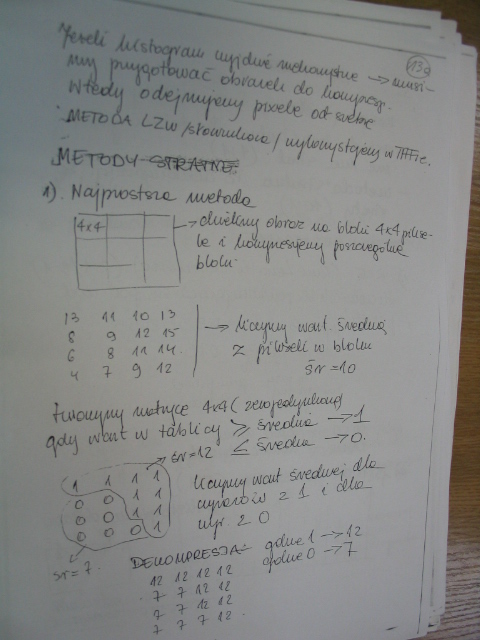 13a
Jeżeli histogram wyjdzie niekorzystnie → musi-
my przygotować obrazek do kompresj.
Wtedy odejmujemy piksele od siebie
METODA LZW /słownikowa/ wykorzystujemy w TIFFie.
METODY STRATNE:
1). Najprostsza metoda
4x4
→ dzielimy obraz na bloki 4x4 pikse-
le i kompresujemy poszczególne
bloki.
13 11 10 13
8 9 12 15
6 8 11 14
4 7 9 12
→ liczymy wart. średnią
z pikseli w bloku
śr = 10
Tworzymy matrycę 4x4 (zerojedynkową)
gdy wart w tablicy ≥ średnia → 1
≤ średnia → 0.
śr = 12
1 1 1 1
0 0 1 1
0 0 1 1
0 0 0 1
śr = 7.
liczymy wart średniej dla
wyrazów z 1 i dla
wyr. z 0
DEKOMPRESJA: gdzie 1 → 12
gdzie 0 → 7
12 12 12 12
7 7 12 12
7 7 12 12
7 7 7 12